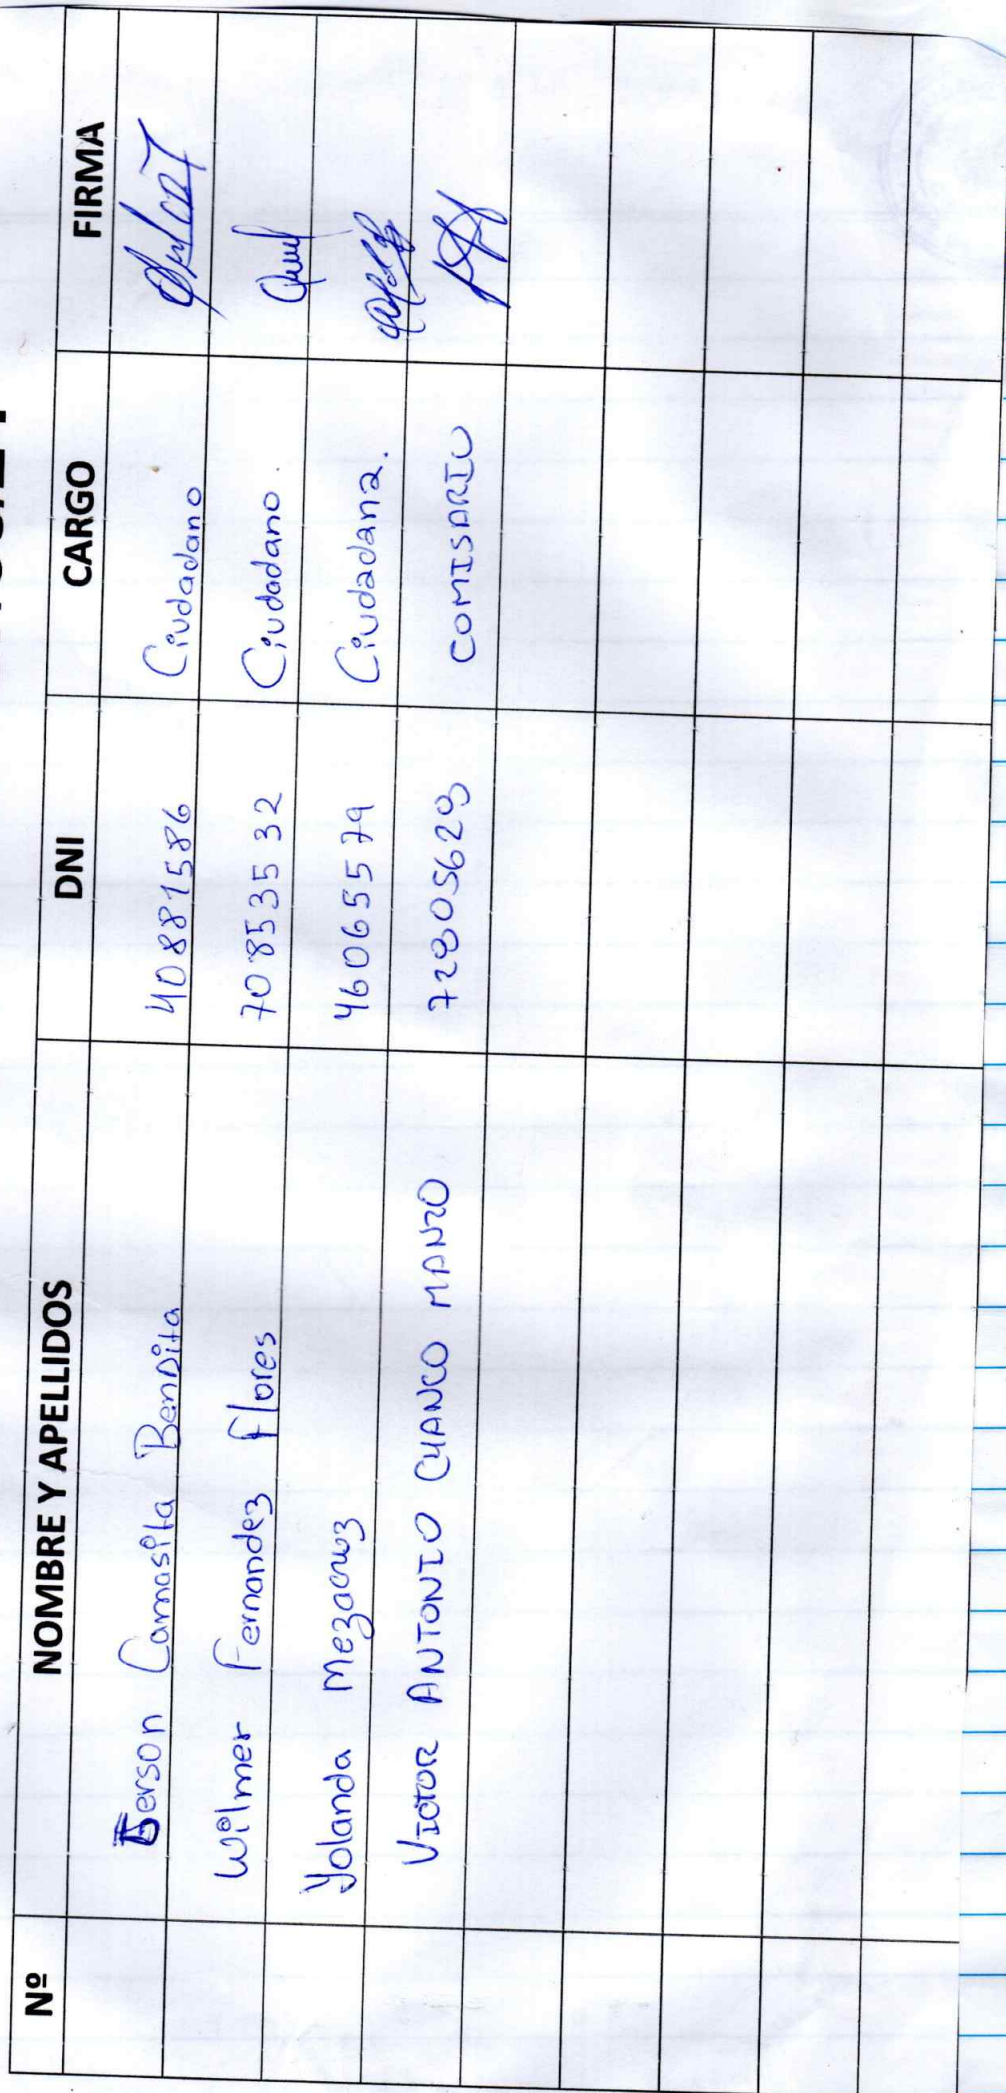 Nº NOMBRE Y APELLIDOS DNI CARGO FIRMA
Gerson Camasita Bendita 40881586 Ciudadano
Wilmer Fernandez flores 70853532 Ciudadano
Yolanda Mezacuz 46065579 Ciudadana.
VICTOR ANTONIO CHANCO MANZO 72805629 COMISARIO